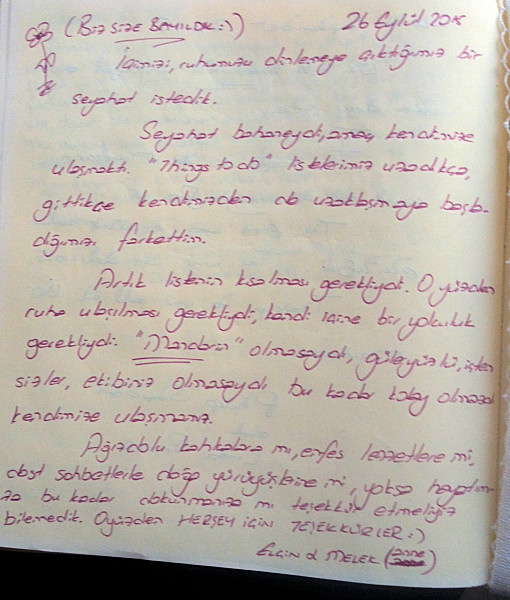 (BİZ SİZE BAYILDIK :) ) 26 Eylül 2015
İçimizi, ruhumuzu dinlemeye çıktığımız bir
seyahat istedik.
Seyahat bahaneydi, amaç kendimize
ulaşmaktı. "Things to do" listelerimiz uzadıkça,
gittikçe kendimizden de uzaklaşmaya başla-
dığımızı farkettim.
Artık listenin kısalması gerekliydi. O yüzden
ruha ulaşılması gerekliydi, kendi içine bir yolculuk
gerekliydi. olmasaydı, güleryüzlü, içten
sizler, ekibiniz olmasaydı bu kadar kolay olmazdı
kendimize ulaşmamız.
Ağızdolu kahkahara mı, enfes lezzetlere mi,
dost sohbetlerle doğa yürüyüşlerine mi, yoksa hayatımı-
za bu kadar dokunmanıza mı teşekkür etmeliyiz
bilemedik. O yüzden HERŞEY İÇİN TEŞEKKÜRLER :)
ELGİN & MELEK (anne)